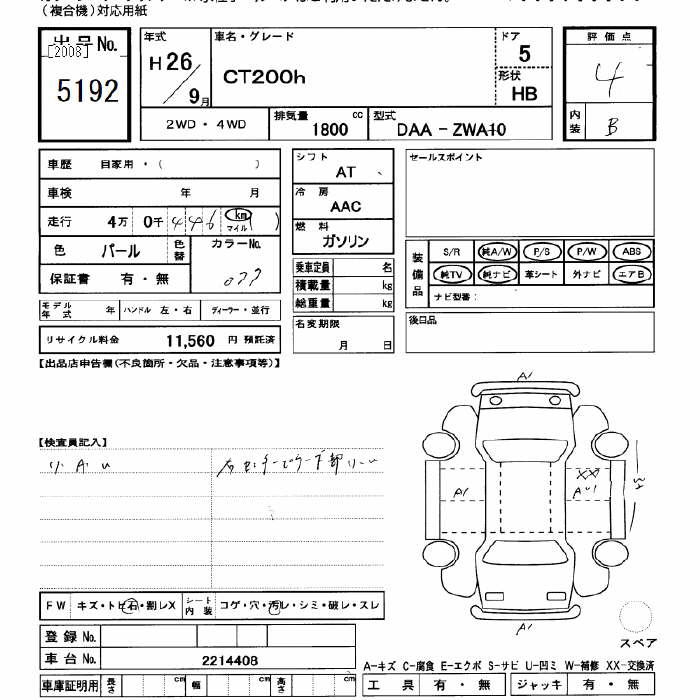 (複合機)対応用紙
出品No. 年式 車名・グレード ドア 評価点
[2008] 5192 H26/9月 CT200h 5 4
形状 HB
内装 B
2WD・4WD 排気量 1800 cc 型式 DAA-ZWA10
車歴 自家用・( )
車検 年 月
走行 4万 0千 446 km マイル ( )
色 パール 色替 カラーNo. 077
保証書 有・無
モデル年式 年 ハンドル 左・右 ディーラー・並行
リサイクル料金 11,560 円 預託済
シフト AT
冷房 AAC
燃料 ガソリン
乗車定員 名
積載量 kg
総重量 kg
名変期限 月 日
セールスポイント
装備品 S/R 純A/W P/S P/W ABS
純TV 純ナビ 革シート 外ナビ エアB
ナビ型番:
後日品
【出品店申告欄(不良箇所・欠品・注意事項等)】
A1
【検査員記入】
小 A U
A1 XX AU1
FW キズ・トビ石・割レX シート内装 コゲ・穴・汚レ・シミ・破レ・スレ
A1
登録No.
車台No. 2214408
スペア
A-キズ C-腐食 E-エクボ S-サビ U-凹ミ W-補修 XX-交換済
車庫証明用 長さ cm 幅 cm 高さ cm 工具 有・無 ジャッキ 有・無